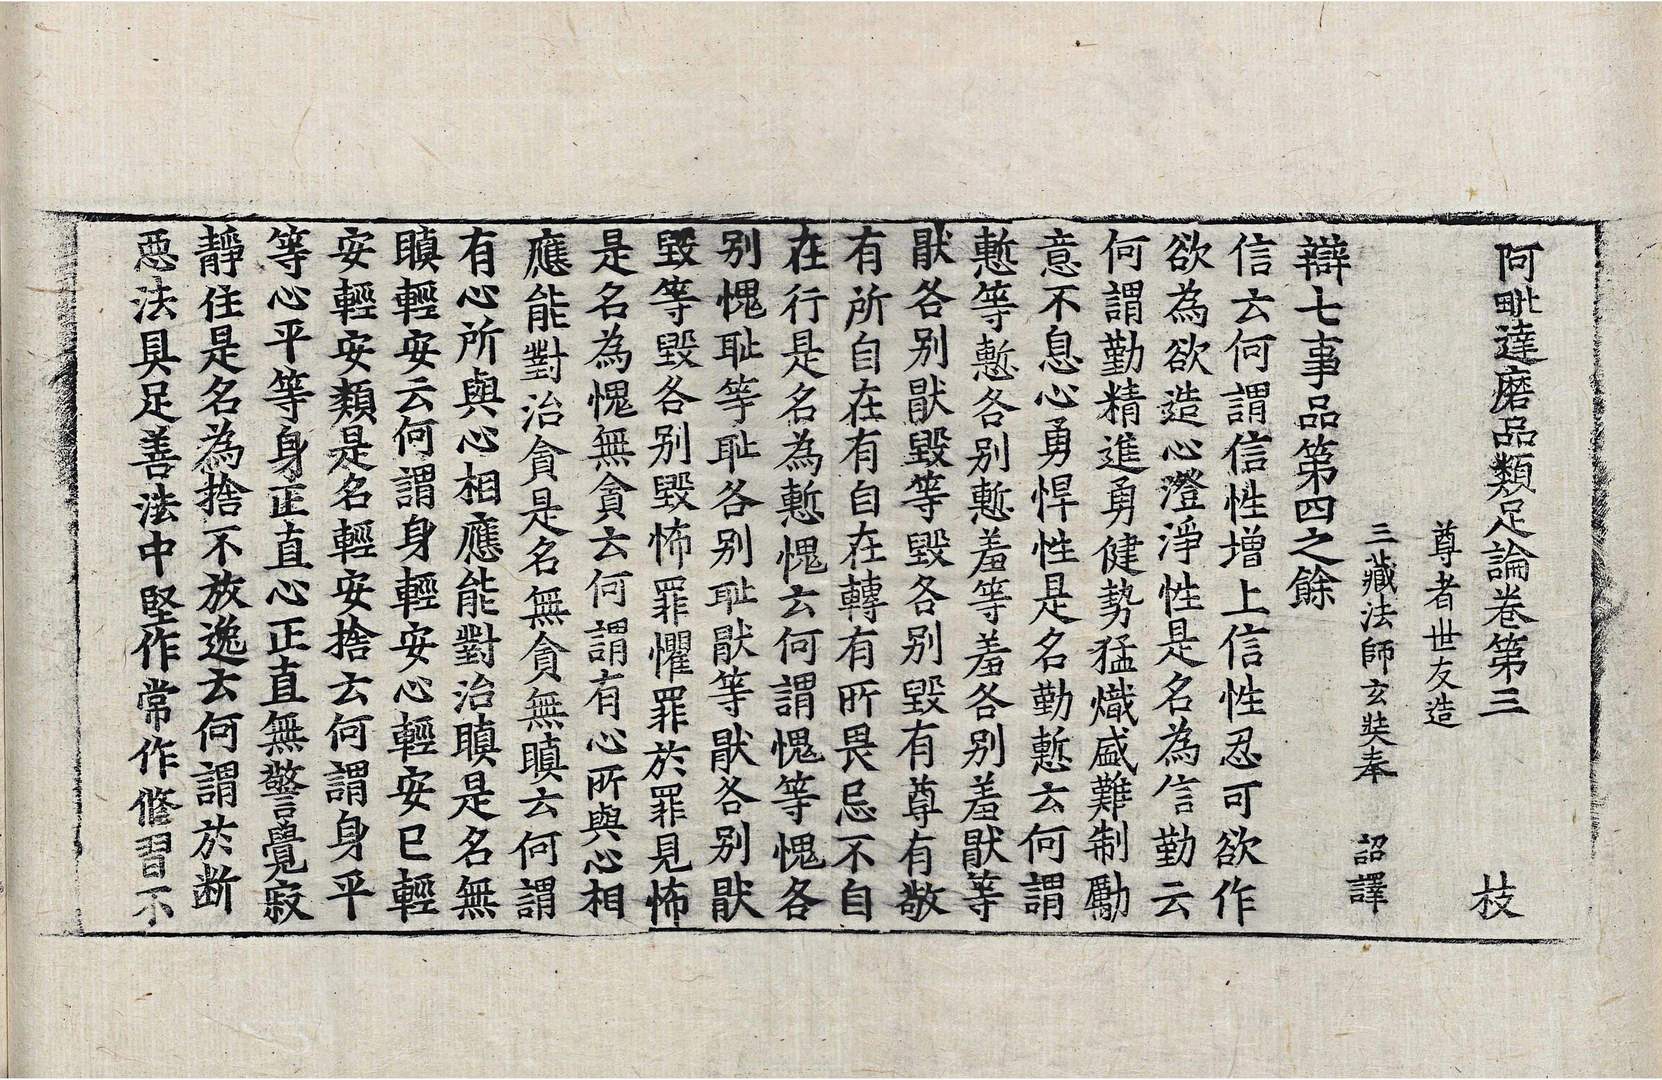 阿毗達磨品類足論卷第三 枝
尊者世友造
三藏法師玄奘奉 詔譯
辯七事品第四之餘
信云何謂信性增上信性忍可欲作
欲為欲造心澄淨性是名為信勤云
何謂勤精進勇健勢猛熾盛難制勵
意不息心勇悍性是名勤慙云何謂
慙等慙各别慙羞等羞各别羞猒等
猒各别猒毀等毀各别毀有尊有敬
有所自在有自在轉有所畏忌不自
在行是名為慙愧云何謂愧等愧各
别愧耻等耻各别耻猒等猒各别猒
毀等毀各别毀怖罪懼罪於罪見怖
是名為愧無貪云何謂有心所與心相
應能對治貪是名無貪無瞋云何謂
有心所與心相應能對治瞋是名無
瞋輕安云何謂身輕安心輕安已輕
安輕安類是名輕安捨云何謂身平
等心平等身正直心正直無警覺寂
靜住是名為捨不放逸云何謂於断
惡法具足善法中堅作常作修習不